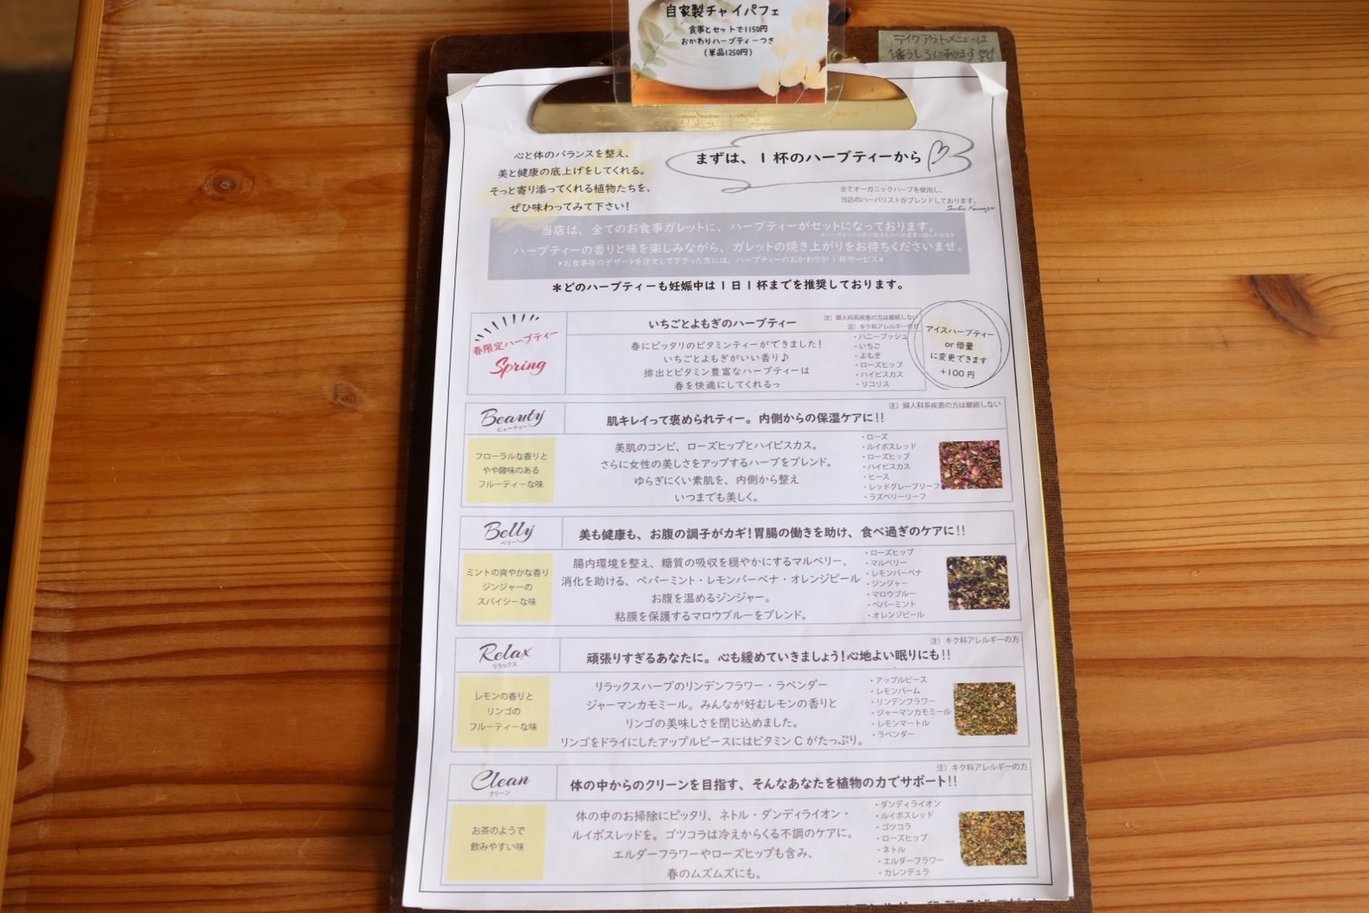 自家製チャイパフェ
食事とセットで1150円
おかわりハーブティーつき
(単品1250円)
テイクアウトメニューは
1番うしろにあります
心と体のバランスを整え、
美と健康の底上げをしてくれる。
そっと寄り添ってくれる植物たちを、
ぜひ味わってみて下さい!
まずは、1杯のハーブティーから
全てオーガニックハーブを使用し、
当店のハーバリストがブレンドしております。
当店は、全てのお食事ガレットに、ハーブティーがセットになっております。
ハーブティーの香りと味を楽しみながら、ガレットの焼き上がりをお待ちくださいませ。
*お食事後のデザートを注文して下さった方には、ハーブティーのおかわりが1杯サービス*
*どのハーブティーも妊娠中は1日1杯までを推奨しております。
春限定ハーブティー
Spring
いちごとよもぎのハーブティー
注)婦人科系疾患の方は継続しない
注)キク科アレルギーの方
春にピッタリのビタミンティーができました!
いちごとよもぎがいい香り♪
排出とビタミン豊富なハーブティーは
春を快適にしてくれるっ
・ハニーブッシュ
・いちご
・よもぎ
・ローズヒップ
・ハイビスカス
・リコリス
アイスハーブティー
or 倍量
に変更できます
+100円
Beauty
ビューティー
肌キレイって褒められティー。内側からの保湿ケアに!!
注)婦人科系疾患の方は継続しない
フローラルな香りと
やや酸味のある
フルーティーな味
美肌のコンビ、ローズヒップとハイビスカス。
さらに女性の美しさをアップするハーブをブレンド。
ゆらぎにくい素肌を、内側から整え
いつまでも美しく。
・ローズ
・ルイボスレッド
・ローズヒップ
・ハイビスカス
・ヒース
・レッドグレープリーフ
・ラズベリーリーフ
Belly
ベリー
美も健康も、お腹の調子がカギ!胃腸の働きを助け、食べ過ぎのケアに!!
ミントの爽やかな香り
ジンジャーの
スパイシーな味
腸内環境を整え、糖質の吸収を穏やかにするマルベリー、
消化を助ける、ペパーミント・レモンバーベナ・オレンジピール
お腹を温めるジンジャー。
粘膜を保護するマロウブルーをブレンド。
・ローズヒップ
・マルベリー
・レモンバーベナ
・ジンジャー
・マロウブルー
・ペパーミント
・オレンジピール
Relax
リラックス
注)キク科アレルギーの方
頑張りすぎるあなたに。心も緩めていきましょう!心地よい眠りにも!!
レモンの香りと
リンゴの
フルーティーな味
リラックスハーブのリンデンフラワー・ラベンダー
ジャーマンカモミール。みんなが好むレモンの香りと
リンゴの美味しさを閉じ込めました。
リンゴをドライにしたアップルピースにはビタミンCがたっぷり。
・アップルピース
・レモンバーム
・リンデンフラワー
・ジャーマンカモミール
・レモンマートル
・ラベンダー
Clean
クリーン
注)キク科アレルギーの方
体の中からのクリーンを目指す、そんなあなたを植物の力でサポート!!
お茶のようで
飲みやすい味
体の中のお掃除にピッタリ、ネトル・ダンディライオン・
ルイボスレッドを。ゴツコラは冷えからくる不調のケアに。
エルダーフラワーやローズヒップも含み、
春のムズムズにも。
・ダンディライオン
・ルイボスレッド
・ゴツコラ
・ローズヒップ
・ネトル
・エルダーフラワー
・カレンデュラ